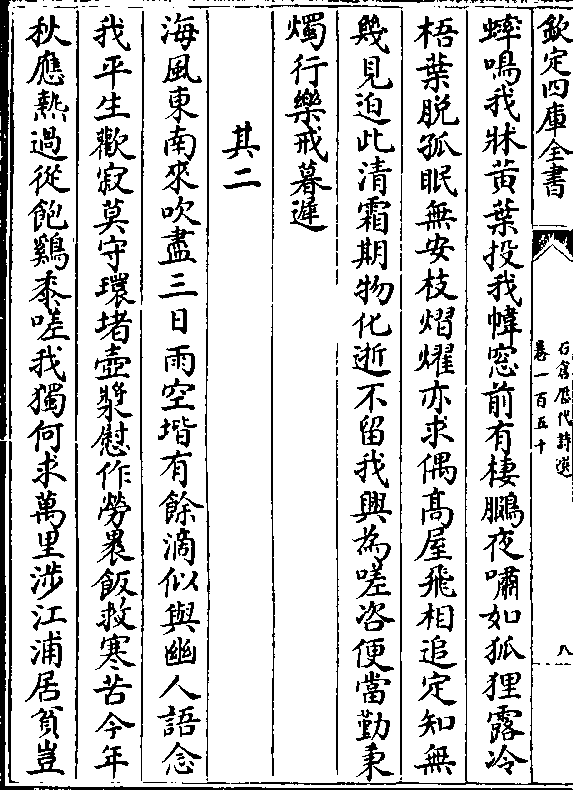 欽定四庫全書
石倉歷代詩選
卷一百五十
八
蟀鳴我牀黃葉投我幃窓前有棲鵩夜嘯如狐狸露冷
梧葉脱孤眠無安枝熠燿亦求偶髙屋飛相追定知無
幾見迫此清霜期物化逝不留我興為嗟咨便當勤秉
燭行樂戒暮遲
其二
海風東南來吹盡三日雨空堦有餘滴似與幽人語念
我平生歡寂莫守環堵壺漿慰作勞褁飯救寒苦今年
秋應熱過從飽鷄黍嗟我獨何求萬里涉江浦居貧豈